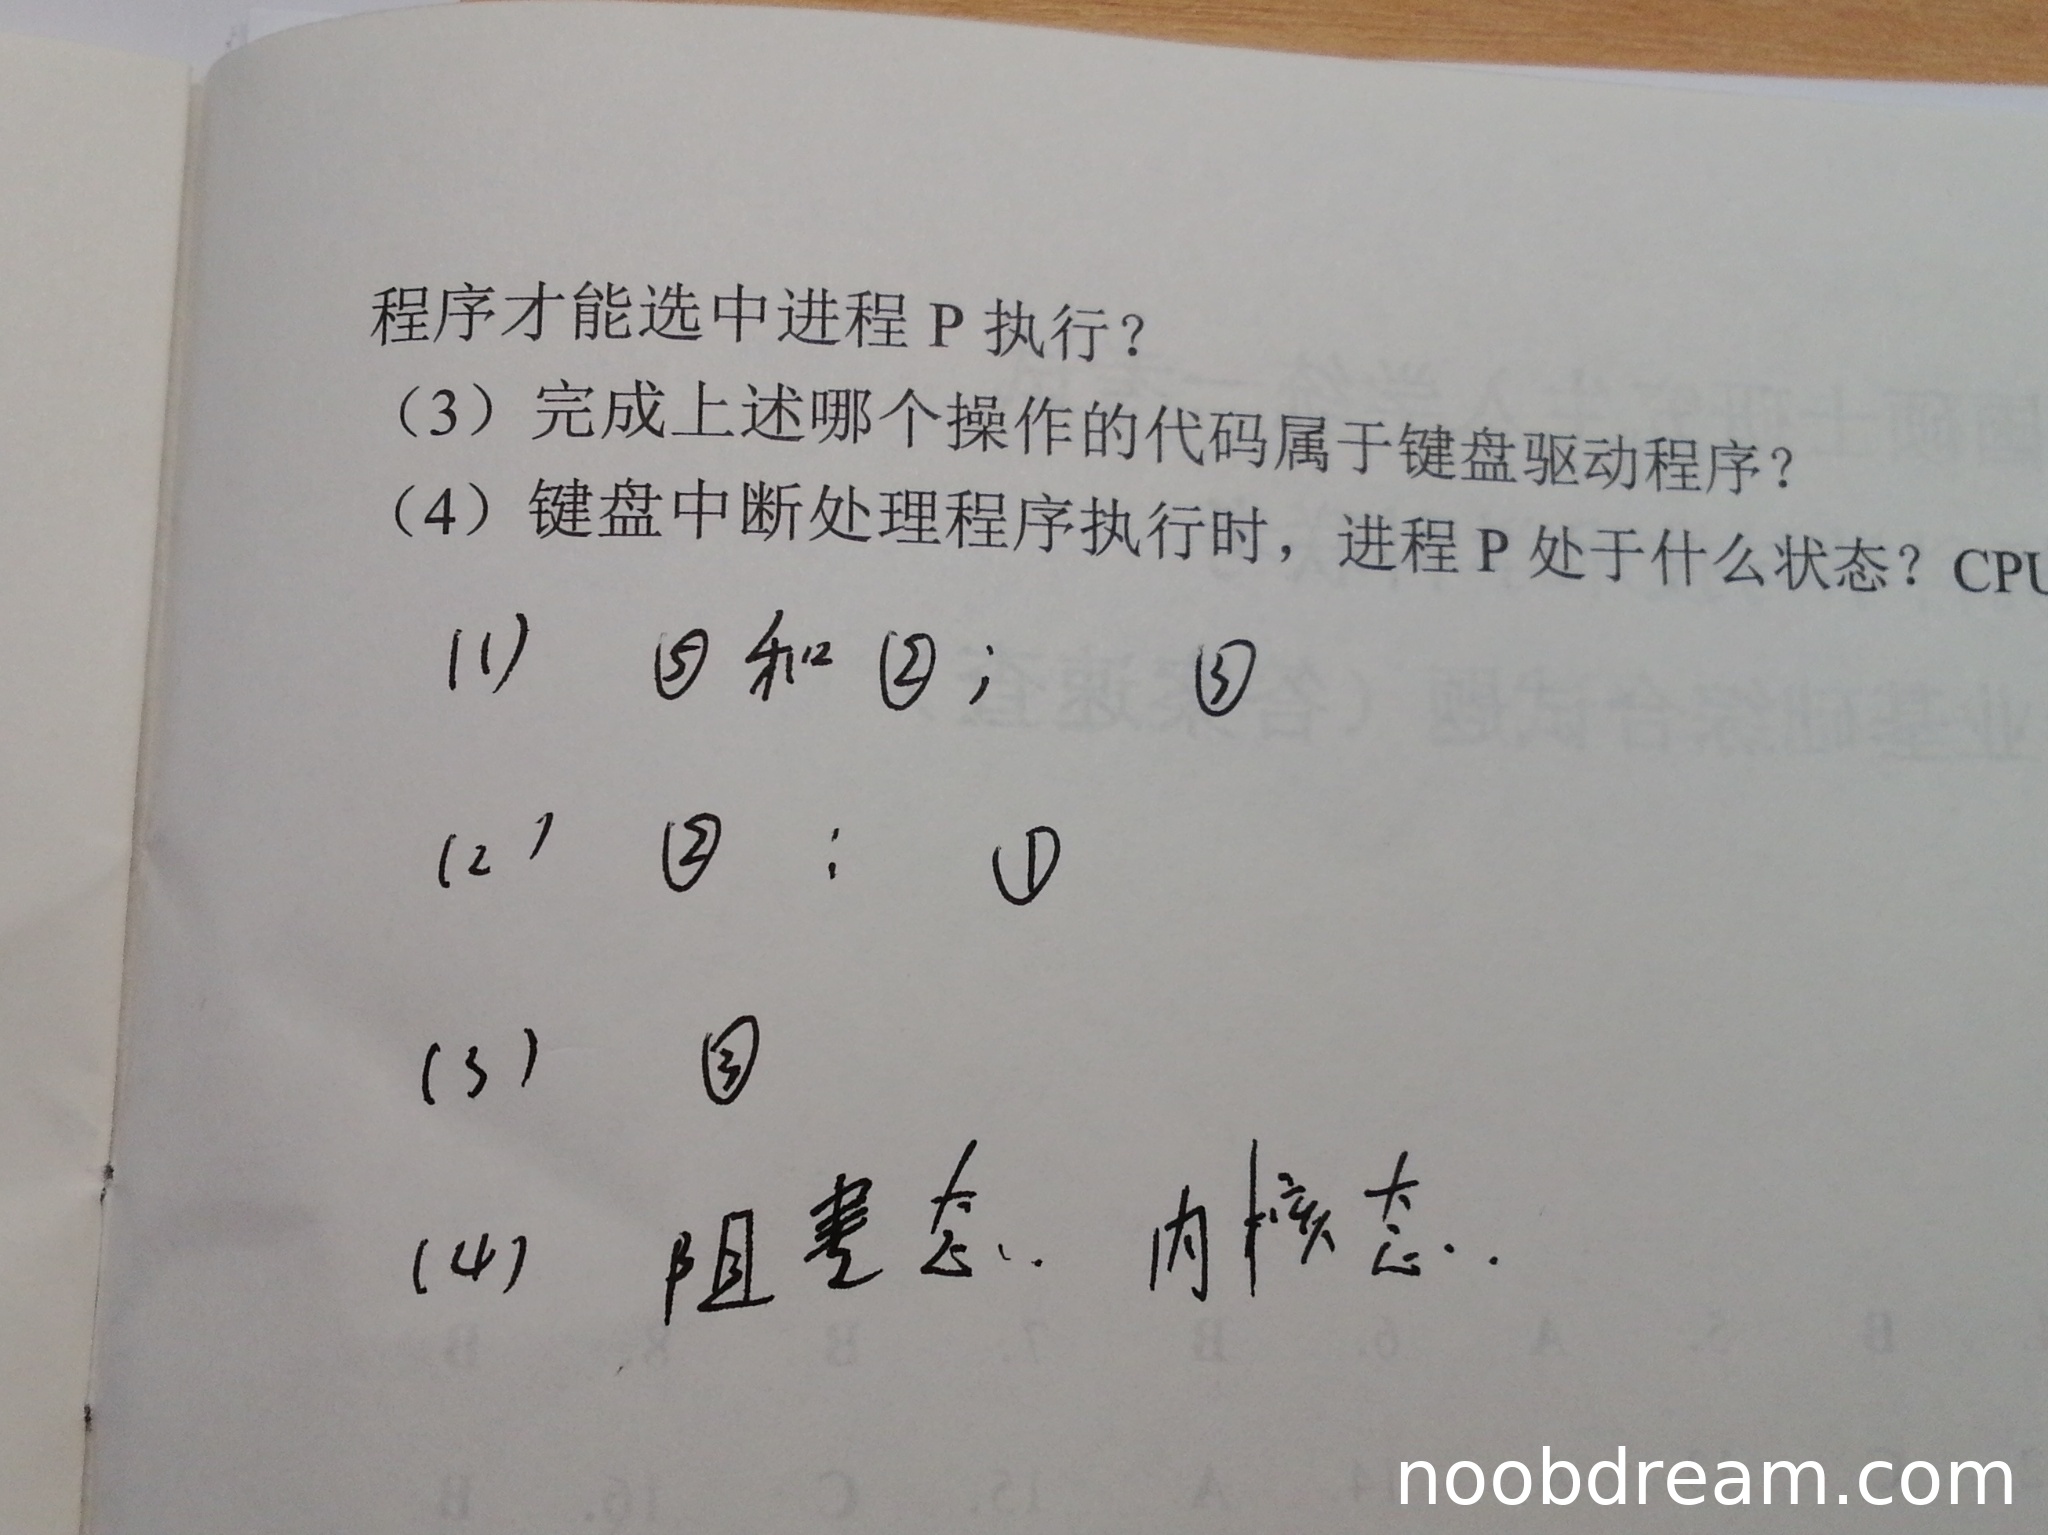 程序才能选中进程 P 执行？
（3）完成上述哪个操作的代码属于键盘驱动程序？
（4）键盘中断处理程序执行时，进程 P 处于什么状态？CPU
(1) ⑤和②； ③
(2) ② ； ①
(3) ③
(4) 阻塞态.. 内核态..
noobdream.com